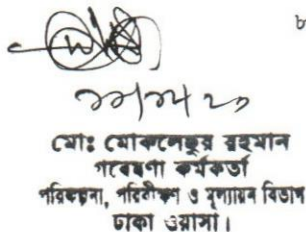 ৮
মোঃ মোকলেছুর রহমান
গবেষণা কর্মকর্তা
পরিকল্পনা, পরিবীক্ষণ ও মূল্যায়ন বিভাগ
ঢাকা ওয়াসা।